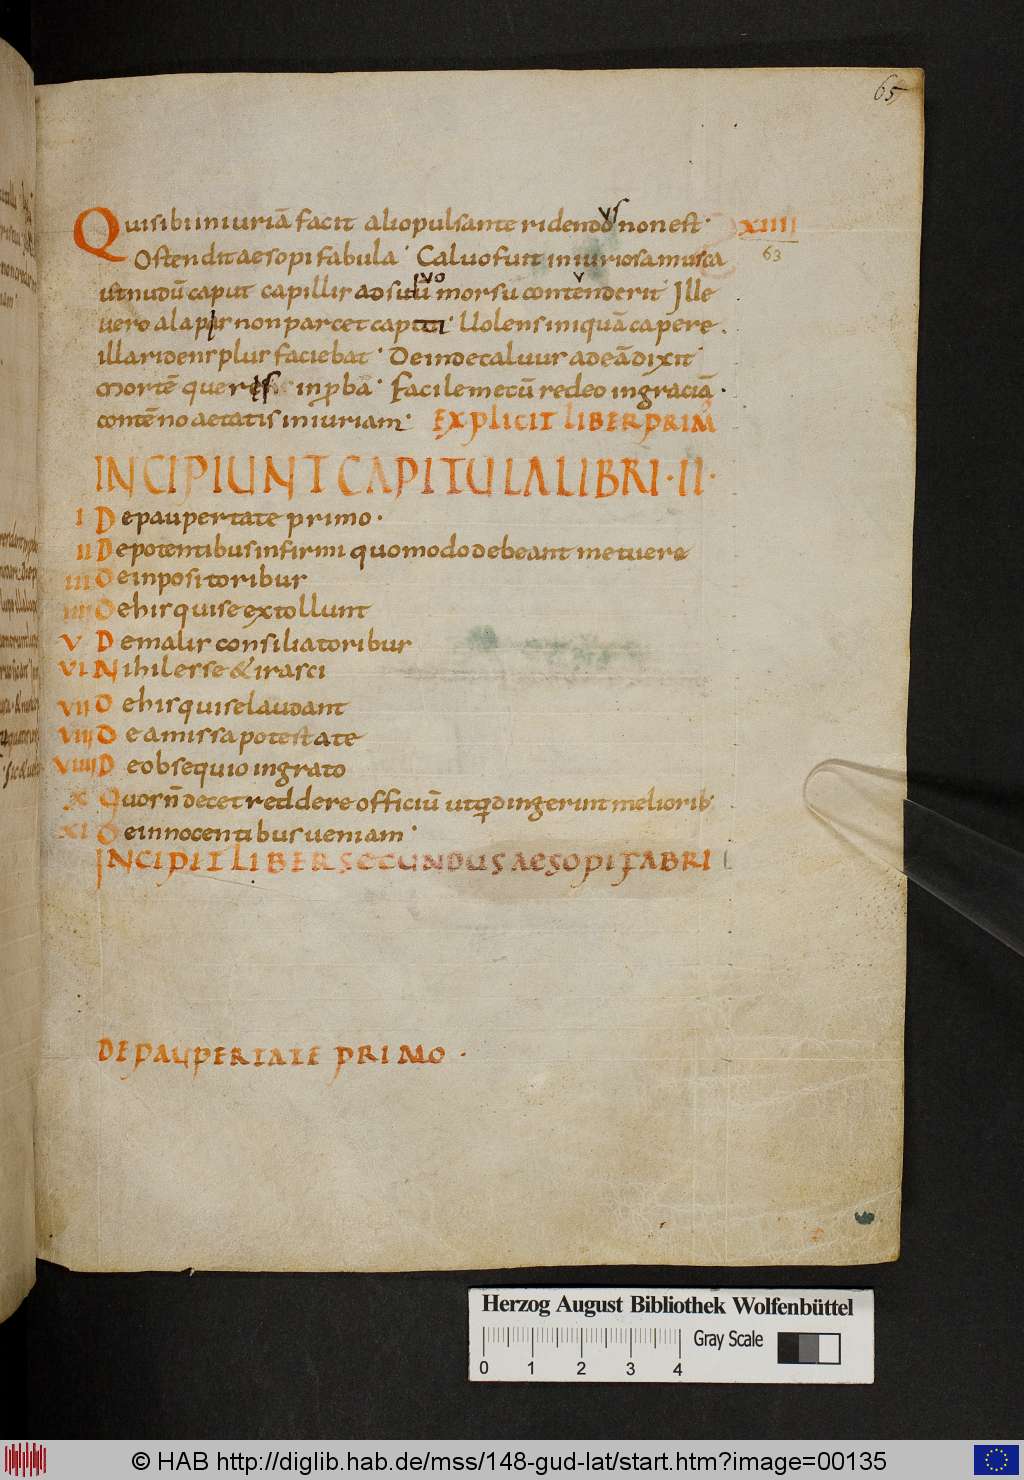 65
Qui sibi iniuriā facit alio pulsante ridendus non est· XIIII
Ostendit aesopi fabula· Calvo fuit iniuriosa musca 63
ut nudū caput capillis adsuluo morsu contenderit· Ille
vero alapis non parcet capiti· Llolens iniquā capere.
illa ridens plus faciebat· Deinde calvus ad eā dixit·
Mortē queres inpba· Facile mecū redeo in graciā·
contēno aetatis iniuriam· EXPLICIT LIBER PRIM
INCIPIUNT CAPITULA LIBRI·II·
I De paupertate primo·
II De potentibus infirmi quomodo debeant metuere
III De inpositoribus
IIII De his qui se extollunt
V De malis consiliatoribus
VI Nihil esse & irasci
VII De his qui se laudant
VIII De amissa potestate
VIIII De obsequio ingrato
X Quos n̄ decet reddere officiū ut qd ingerint meliorib·
XI De innocentibus veniam·
INCIPIT LIBER SECUNDUS AESOPI FABRI
DE PAUPERTATE PRIMO·
Herzog August Bibliothek Wolfenbüttel
Gray Scale
0 1 2 3 4
© HAB http://diglib.hab.de/mss/148-gud-lat/start.htm?image=00135